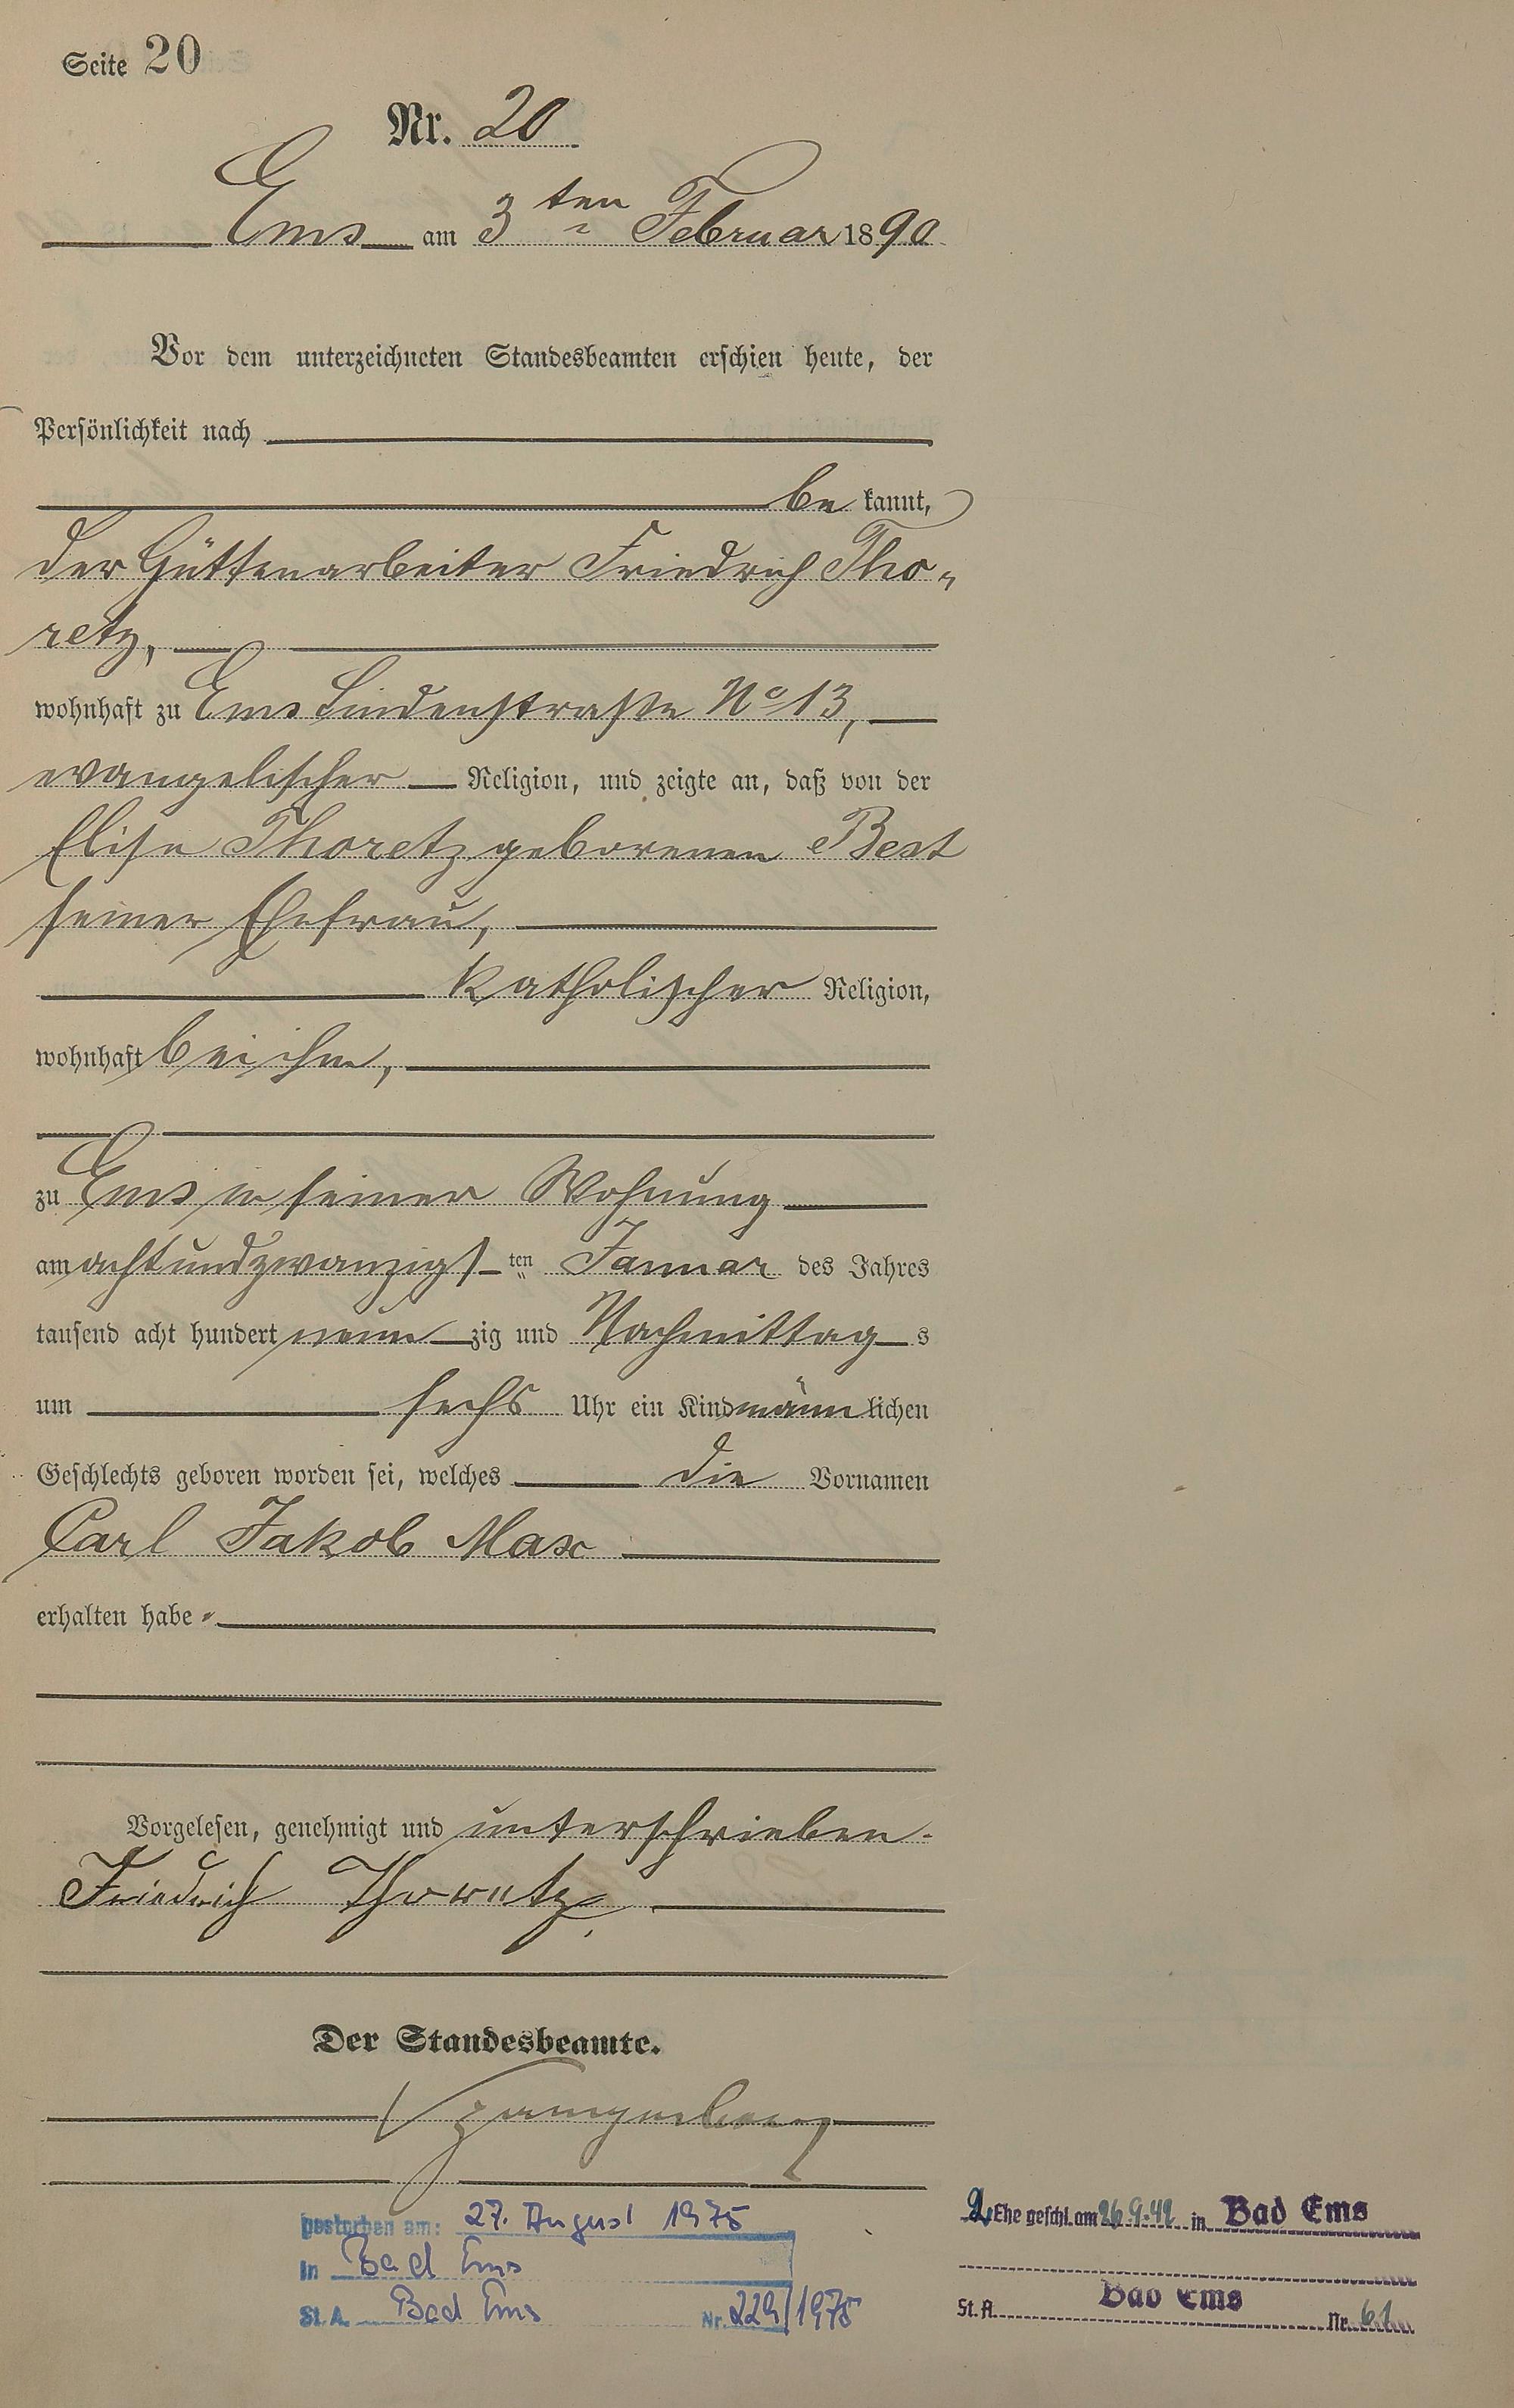 Seite 20
Nr. 20
Ems am 3ten Februar 1890
Vor dem unterzeichneten Standesbeamten erschien heute, der
Persönlichkeit nach
be kannt,
der Hüttenarbeiter Friedrich Tho-
retz,
wohnhaft zu Ems Lindenstraße No 13,
evangelischer Religion, und zeigte an, daß von der
Elise Thoretz geborenen Best
seiner Ehefrau,
katholischer Religion,
wohnhaft bei ihm,
zu Ems in seiner Wohnung
am achtundzwanzigsten Januar des Jahres
tausend acht hundert neunzig und Nachmittags
um sechs Uhr ein Kind männlichen
Geschlechts geboren worden sei, welches die Vornamen
Carl Jakob Max
erhalten habe.
Vorgelesen, genehmigt und unterschrieben.
Friedrich Thoretz.
Der Standesbeamte.
gestorben am: 27. August 1975
in Bad Ems
St. A. Bad Ems Nr. 229/1975
2. Ehe geschl. am 26.9.42 in Bad Ems
St. A. Bad Ems Nr. 61